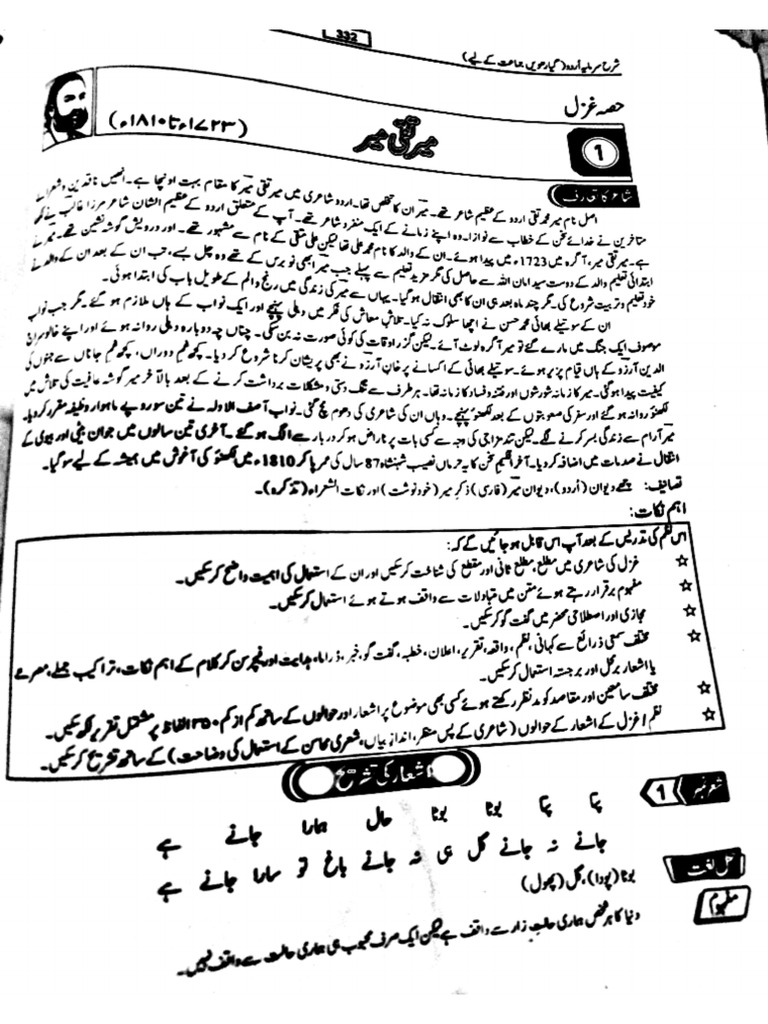 332
شرح سرمایہ اُردو (گیارھویں جماعت کے لیے)
حصہ غزل
1
میر تقی میر
(۱۷۲۳ء تا ۱۸۱۰ء)
شاعر کا تعارف
اصل نام میر محمد تقی اردو کے عظیم شاعر تھے۔ میر ان کا تخلص تھا۔ اردو شاعری میں میر تقی میر کا مقام بہت اونچا ہے۔ انھیں ناقدین و شعرائے
متاخرین نے خدائے سخن کے خطاب سے نوازا۔ وہ اپنے زمانے کے ایک منفرد شاعر تھے۔ آپ کے متعلق اردو کے عظیم الشان شاعر مرزا غالب نے لکھا
ہے۔ میر تقی میر، آگرہ میں 1723ء میں پیدا ہوئے۔ ان کے والد کا نام محمد علی تھا لیکن علی متقی کے نام سے مشہور تھے۔ اور درویش گوشہ نشین تھے۔ میر نے
ابتدائی تعلیم والد کے دوست سید امان اللہ سے حاصل کی مگر مزید تعلیم سے پہلے جب میر ابھی نو برس کے تھے وہ چل بسے، تب ان کے بعد ان کے والد نے
خود تعلیم و تربیت شروع کی۔ مگر چند ماہ بعد ہی ان کا بھی انتقال ہو گیا۔ یہاں سے میر کی زندگی میں رنج و الم کے طویل باب کی ابتدا ہوئی۔
ان کے سوتیلے بھائی محمد حسن نے اچھا سلوک نہ کیا۔ تلاشِ معاش کی فکر میں دہلی پہنچے اور ایک نواب کے ہاں ملازم ہو گئے۔ مگر جب نواب
موصوف ایک جنگ میں مارے گئے تو میر آگرہ لوٹ آئے۔ لیکن گزر اوقات کی کوئی صورت نہ بن سکی۔ چناں چہ دوبارہ دہلی روانہ ہوئے اور اپنے خالو سراج
الدین آرزو کے ہاں قیام پزیر ہوئے۔ سوتیلے بھائی کے اکسانے پر خانِ آرزو نے بھی پریشان کرنا شروع کر دیا۔ کچھ غمِ دوراں، کچھ غمِ جاناں سے جنوں کی
کیفیت پیدا ہو گئی۔ میر کا زمانہ شورشوں اور فتنہ و فساد کا زمانہ تھا۔ ہر طرف سے تنگ دستی و مشکلات برداشت کرنے کے بعد بالآخر میر گوشہ عافیت کی تلاش میں
لکھنؤ روانہ ہو گئے اور سفر کی صعوبتوں کے بعد لکھنؤ پہنچے۔ وہاں ان کی شاعری کی دھوم مچ گئی۔ نواب آصف الدولہ نے تین سو روپے ماہوار وظیفہ مقرر کر دیا۔
میر آرام سے زندگی بسر کرنے لگے۔ لیکن تند مزاجی کی وجہ سے کسی بات پر ناراض ہو کر دربار سے الگ ہو گئے۔ آخری تین سالوں میں جوان بیٹی اور بیوی کے
انتقال نے صدمات میں اضافہ کر دیا۔ آخر اقلیمِ سخن کا یہ حرماں نصیب شہنشاہ 87 سال کی عمر پا کر 1810ء میں لکھنؤ کی آغوش میں ہمیشہ کے لیے سو گیا۔
تصانیف: چھے دیوان (اُردو)، دیوان میر (فارسی) ذکرِ میر (خود نوشت) اور نکات الشعراء (تذکرہ)۔
اہم نکات:
اس نظم کی تدریس کے بعد آپ اس قابل ہو جائیں گے کہ:
☆ غزل کی شاعری میں مطلع، مطلع ثانی اور مقطع کی شناخت کر سکیں اور ان کے استعمال کی اہمیت واضح کر سکیں۔
☆ مفہوم برقرار رہتے ہوئے متن میں متبادلات سے واقف ہوتے ہوئے استعمال کر سکیں۔
☆ مجازی اور اصطلاحی محضر میں گفت گو کر سکیں۔
☆ مختلف سمعی ذرائع سے کہانی، نظم، واقعہ، تقریر، اعلان، خطبہ، گفت گو، خبر، ڈراما، ہدایت اور فیچر سن کر کلام کے اہم نکات، تراکیب جملے، مصرعے
یا اشعار برمحل اور برجستہ استعمال کر سکیں۔
☆ مختلف سامعین اور مقاصد کو مدنظر رکھتے ہوئے کسی بھی موضوع پر اشعار اور حوالوں کے ساتھ کم از کم ۳۵۰ الفاظ پر مشتمل تقریر لکھ سکیں۔
☆ نظم / غزل کے اشعار کے حوالوں (شاعری کے پس منظر، اندازِ بیاں، شعری محاسن کے استعمال کی وضاحت) کے ساتھ تشریح کر سکیں۔
اشعار کی تشریح
شعر نمبر 1
پتا پتا بوٹا بوٹا حال ہمارا جانے ہے
جانے نہ جانے گل ہی نہ جانے باغ تو سارا جانے ہے
حل لغت
بوٹا (پودا)، گل (پھول)
مفہوم
دنیا کا ہر شخص ہماری حالتِ زار سے واقف ہے لیکن ایک صرف محبوب ہی ہماری حالت سے واقف نہیں۔